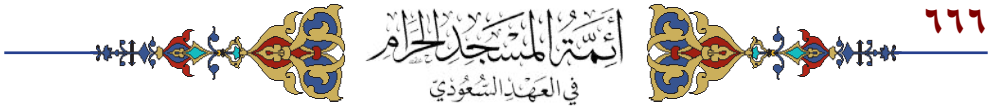 ٦٦٦
أَئِمَّةُ المَسْجِدِ الحَرَامِ
في العَهْدِ السُّعُودِيّ